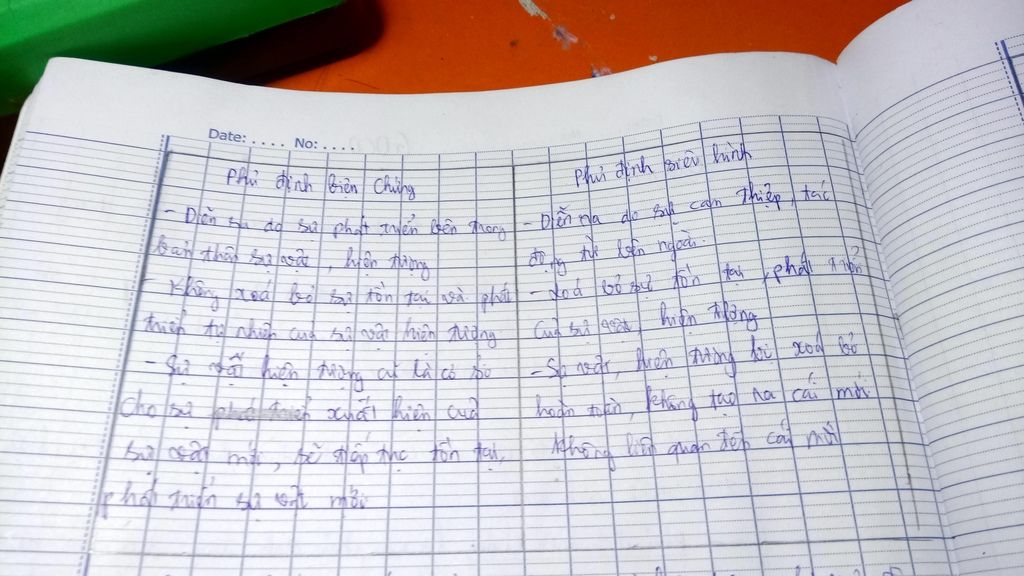 Date: . . . . No: . . . .
Phủ định biện chứng
- Diễn ra do sự phát triển bên trong
bản thân sự vật, hiện tượng
- Không xoá bỏ sự tồn tại và phát
triển tự nhiên của sự vật hiện tượng
- Sự vật hiện tượng cũ là cơ sở
cho sự xuất hiện của
sự vật mới, sẽ tiếp tục tồn tại,
phát triển sự vật mới
Phủ định siêu hình
- Diễn ra do sự can thiệp, tác
động từ bên ngoài.
- Xoá bỏ sự tồn tại, phát triển
của sự vật, hiện tượng
- Sự vật, hiện tượng bị xoá bỏ
hoàn toàn, không tạo ra cái mới
không liên quan đến cái mới